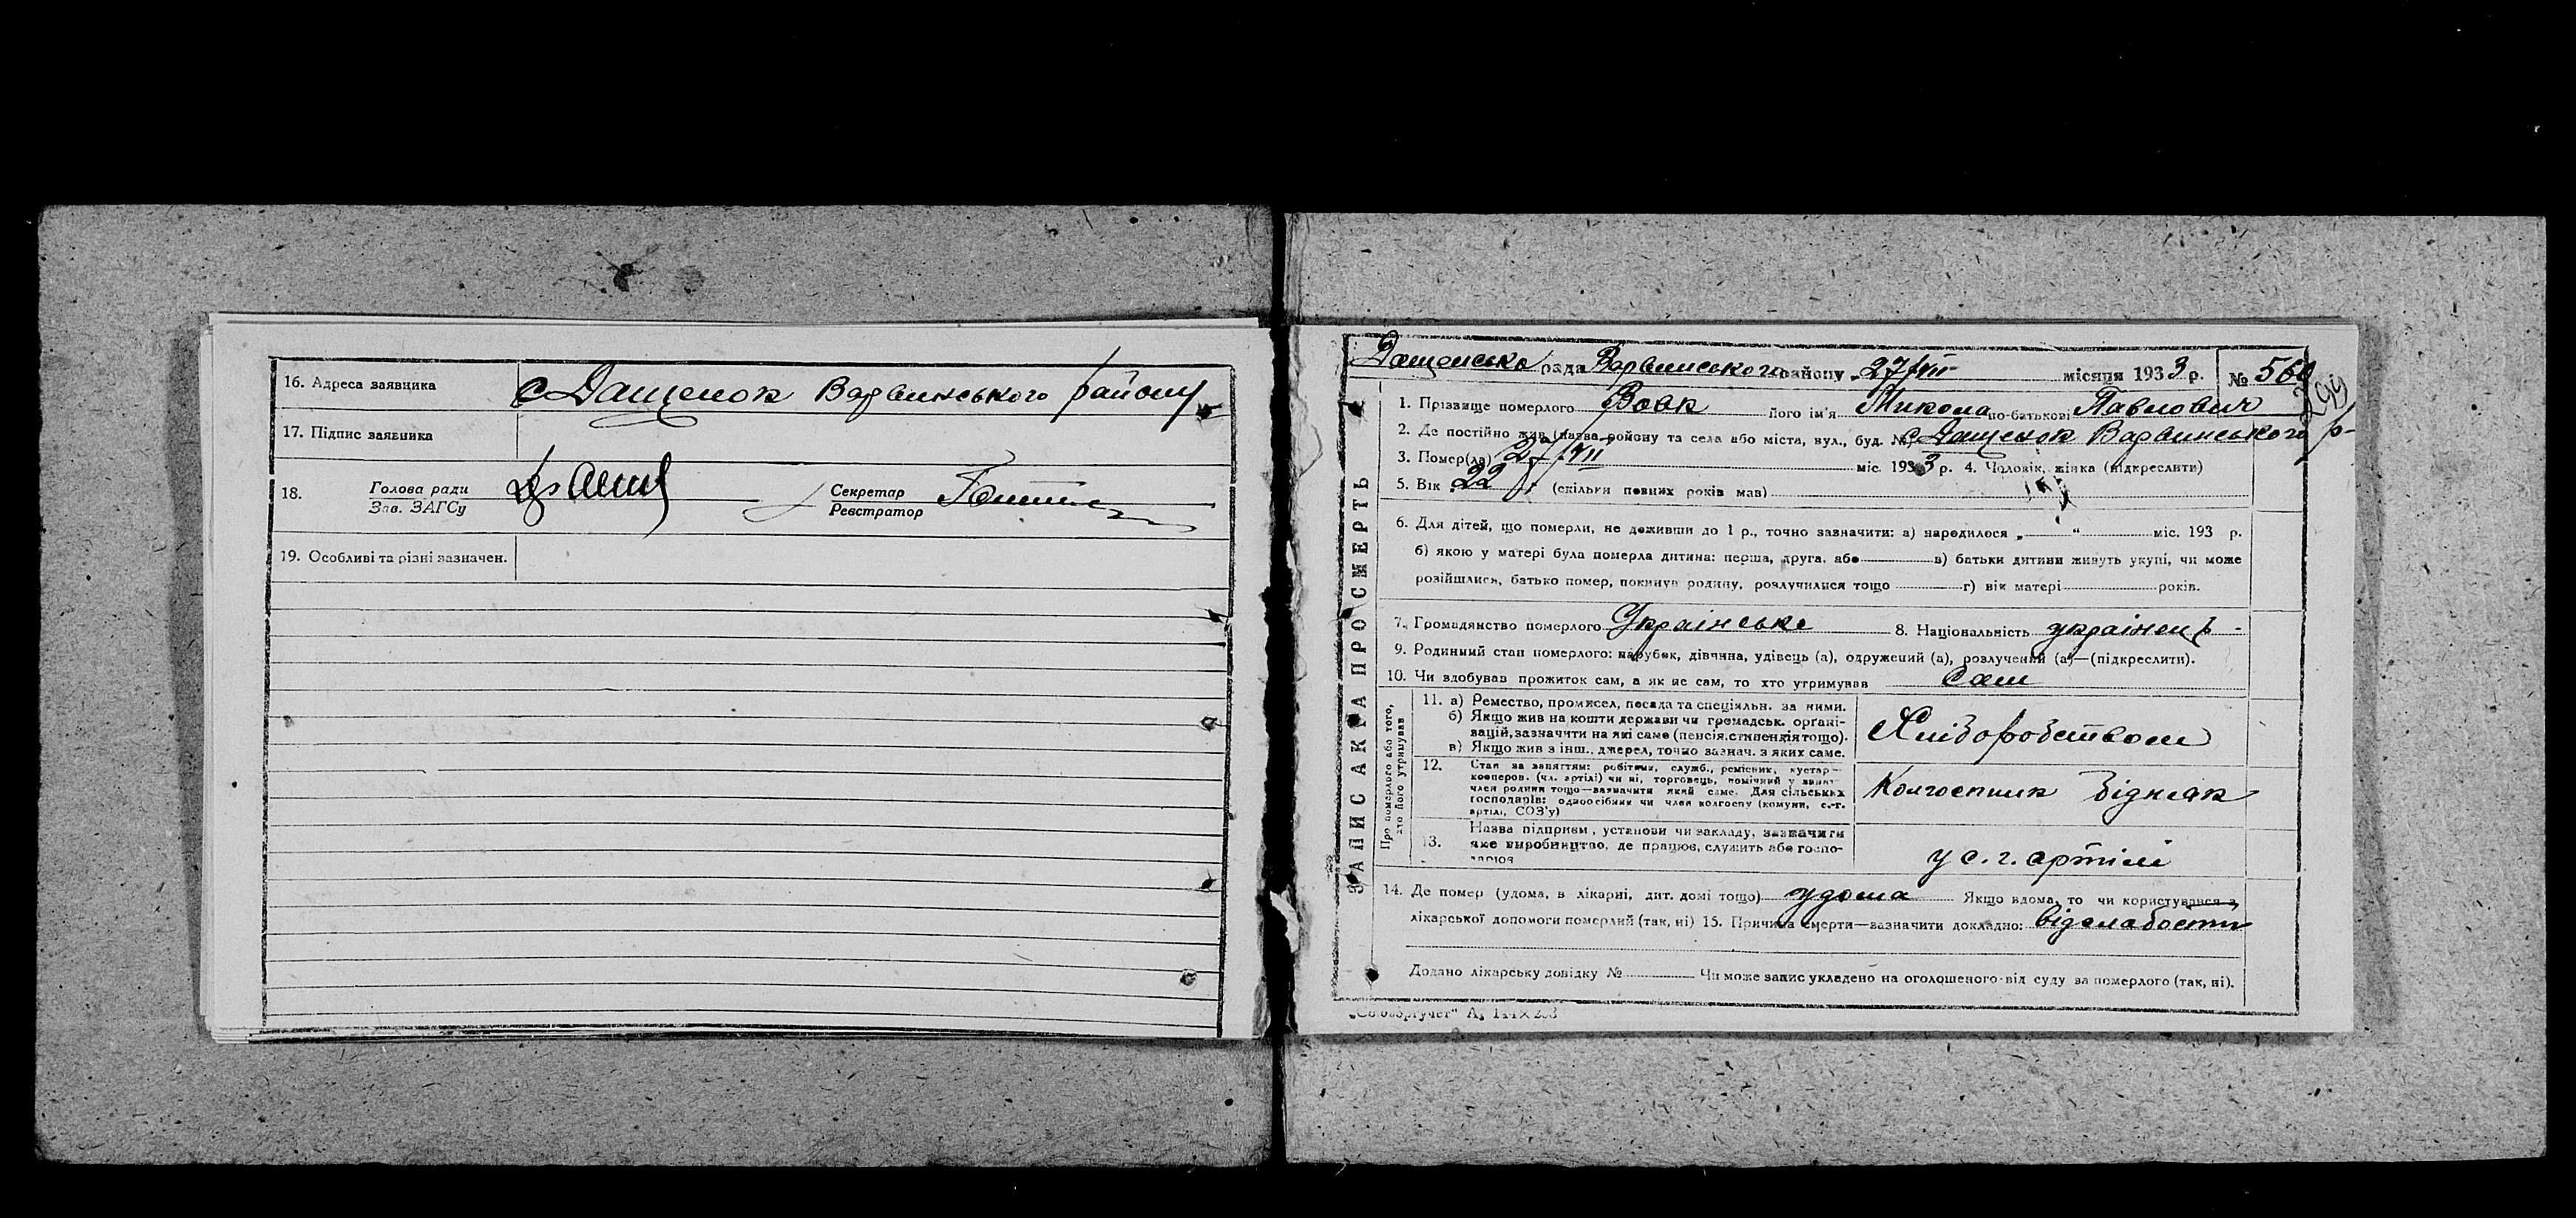 16. Адреса заявника с Дащенок Варвинського району
17. Підпис заявника
18. Голова ради
Зав. ЗАГСу
Секретар
Реєстратор
19. Особливі та різні зазначен.
Дащенська рада Варвинського району „27/VII місяця 1933 р. № 560
ЗАПИС АКТА ПРО СМЕРТЬ
1. Прізвище померлого Вовк його ім'я Микола по-батькові Павлович
2. Де постійно жив (назва району та села або міста, вул., буд. №) с Дащенок Варвинського р-
3. Помер(ла) VII міс. 1933 р. 4. Чоловік, жінка (підкреслити)
5. Вік „22" (скільки повних років мав)
6. Для дітей, що померли, не доживши до 1 р., точно зазначити: а) народилося „ “ міс. 193 р.
б) якою у матері була померла дитина: перша, друга, або в) батьки дитини живуть укупі, чи може
розійшлися, батько помер, покинув родину, розлучилися тощо г) вік матері років.
7. Громадянство померлого Українське 8. Національність українець -
9. Родинний стан померлого: парубок, дівчина, удівець (а), одружений (а), розлучений (а)—(підкреслити).
10. Чи здобував прожиток сам, а як не сам, то хто утримував Сам
Про померлого або того, хто його утримував
11. а) Ремество, промисел, посада та спеціяльн. за ними.
б) Якщо жив на кошти держави чи громадськ. органі-
зацій, зазначити на які саме (пенсія, стипендія тощо).
в) Якщо жив з інш. джерел, точно зазнач. з яких саме.
Хліборобством
12. Стан за заняттям: робітник, служб., ремісник, кустар—
кооперов. (чл. артілі) чи ні, торговець, помічний у занят-
член родини тощо—зазначити який саме. Для сільських
господарів: одноосібник чи член колгоспу (комуни, с.-г.
артілі, СОЗ'у)
Колгоспник Бідняк
13. Назва підприєм., установи чи закладу, зазначити
яке виробництво, де працює, служить або госпо-
дарює
у с. г. артілі
14. Де помер (удома, в лікарні, дит. домі тощо) удома Якщо вдома, то чи користувався з
лікарської допомоги померлий (так, ні) 15. Причина смерти—зазначити докладно: від слабости
Додано лікарську довідку № Чи може запис укладено на оголошеного від суду за померлого (так, ні).